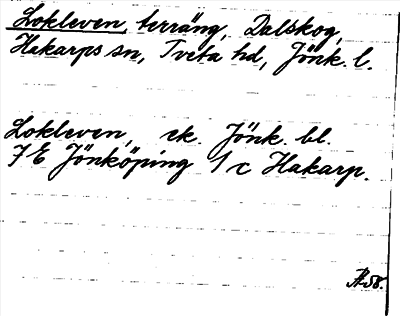 Lokleven, terräng, Dalskog,
Hakarps sn, Tveta hd, Jönk. l.
Lokleven, ek. Jönk. bl.
7 E Jönköping 1 c Hakarp.